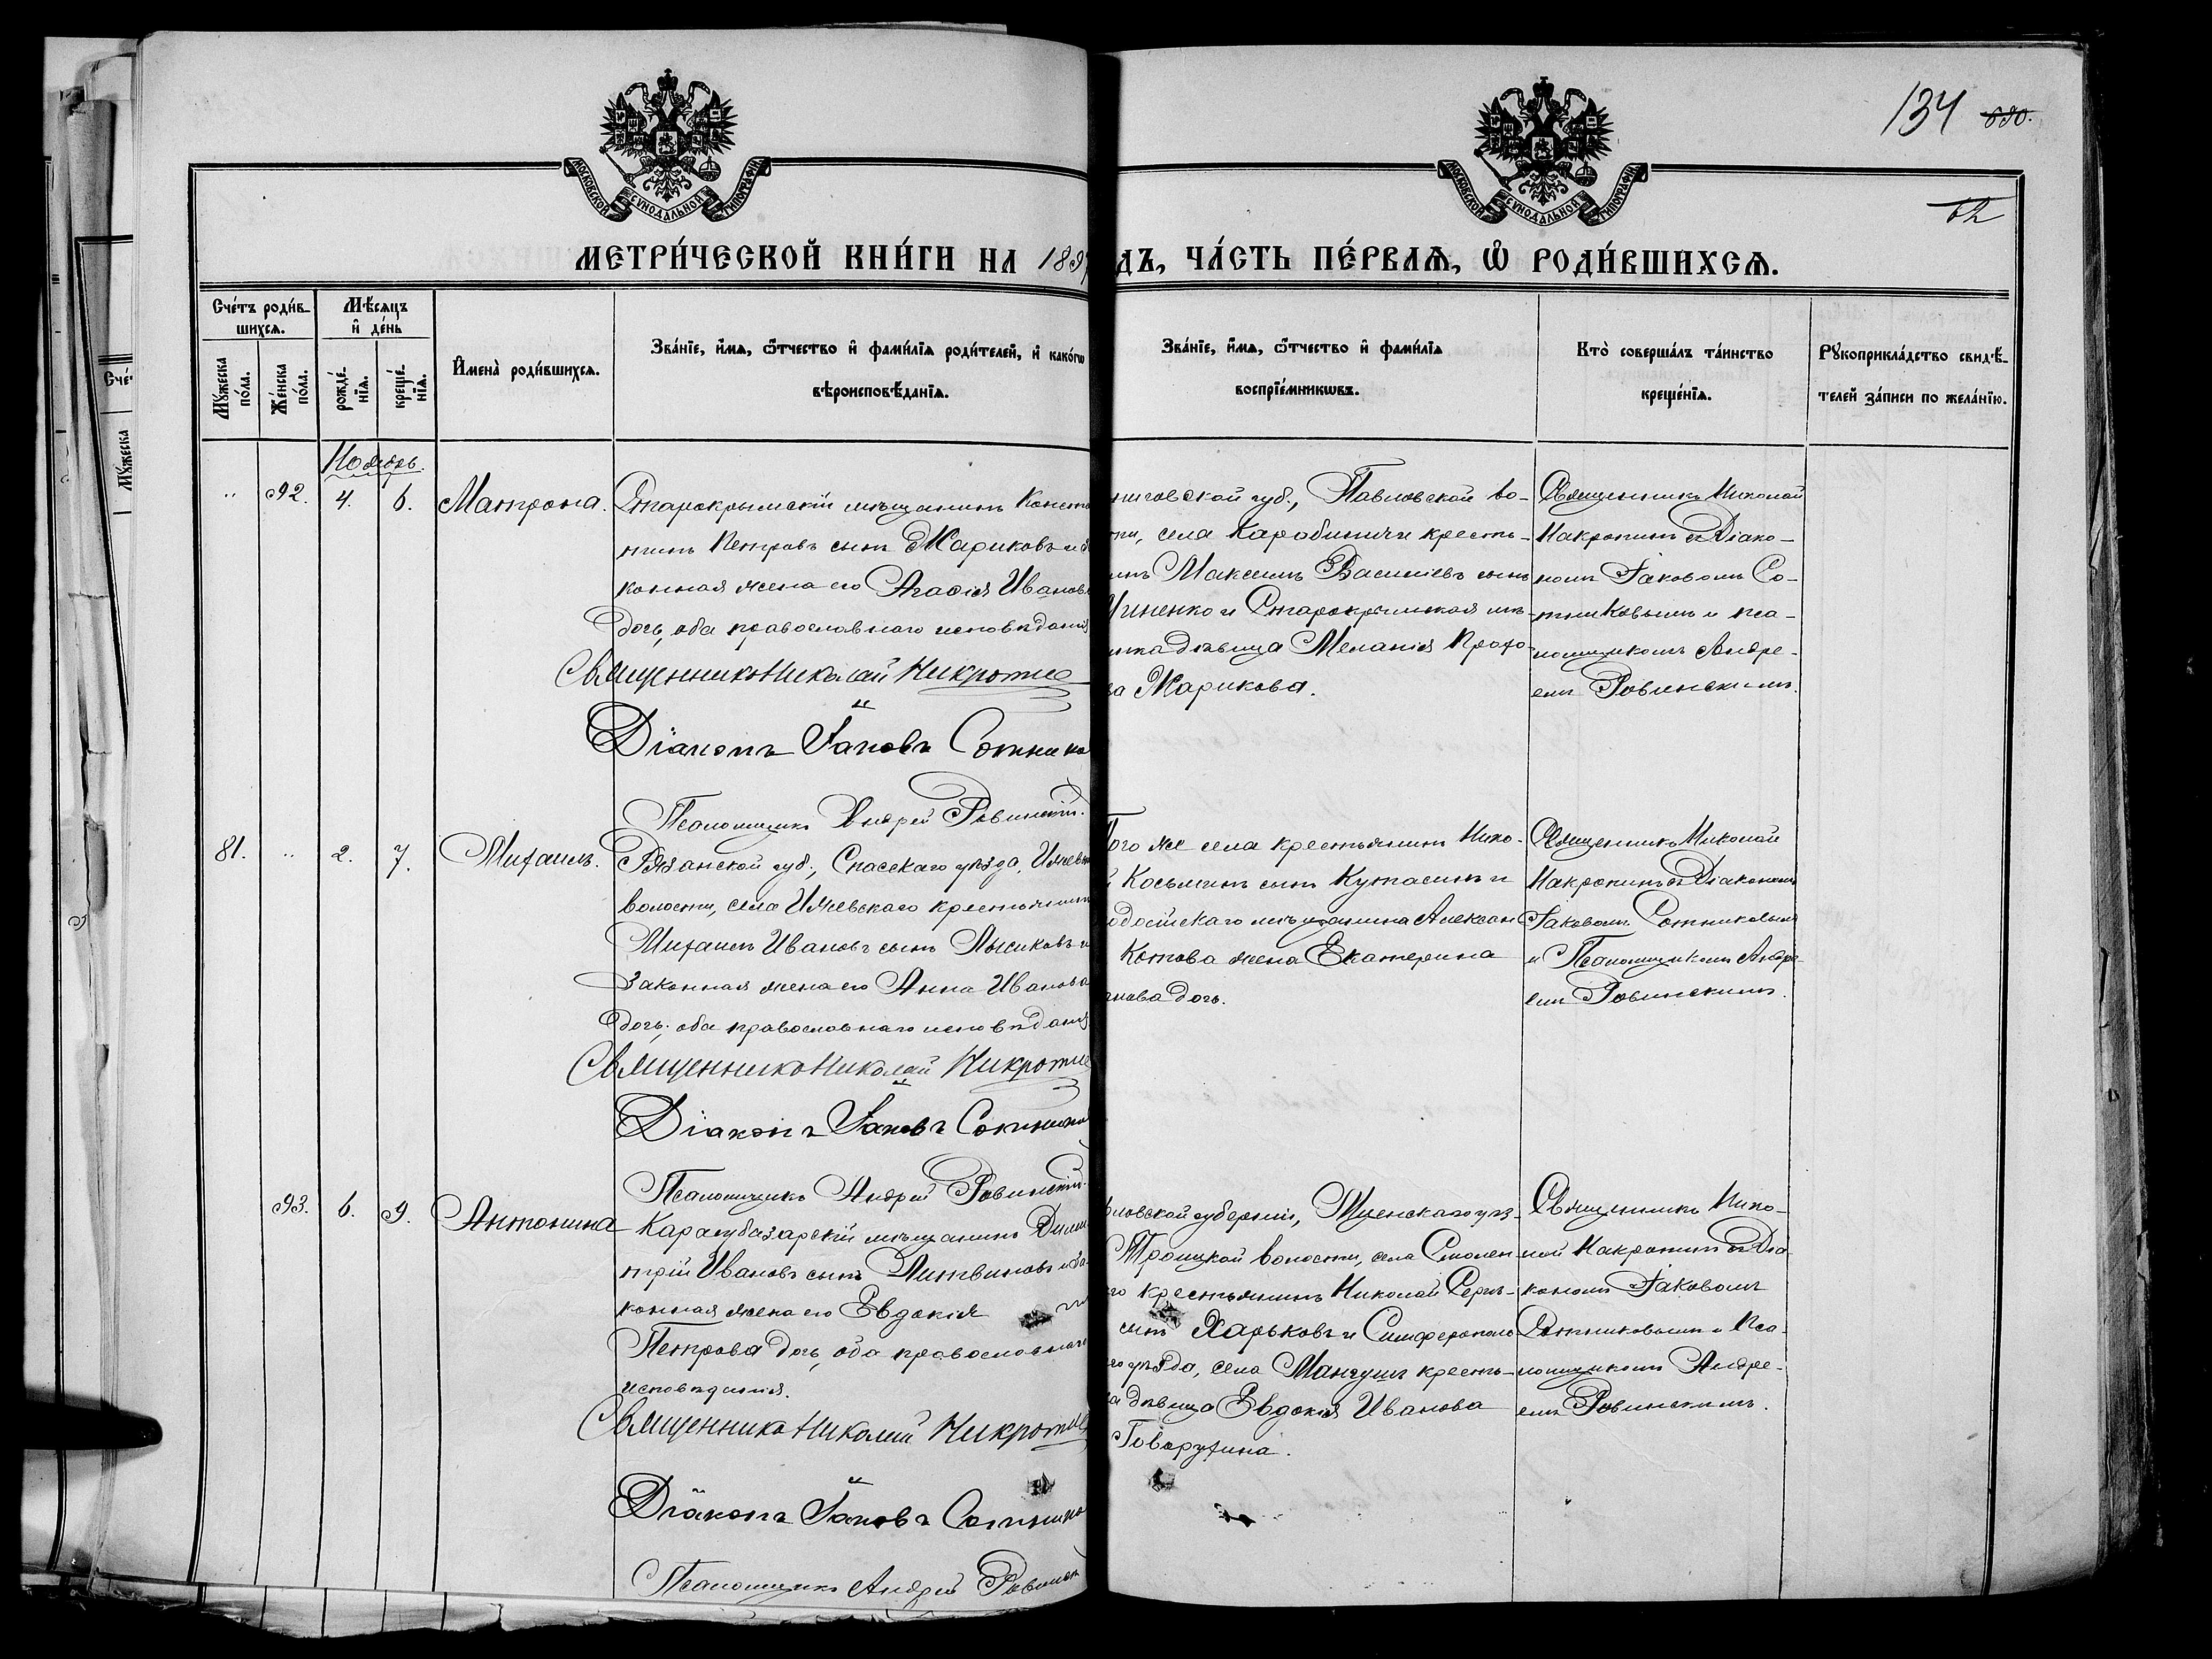 134 690.
МОСКОВСКОЙ СѴНОДАЛЬНОЙ ТИПОГРАФІИ
МОСКОВСКОЙ СѴНОДАЛЬНОЙ ТИПОГРАФІИ
МЕТРИ́ЧЕСКОЙ КНИ́ГИ НА 189
ДЪ, ЧА́СТЬ ПЕ́РВАЯ, Ѡ РОДИ́ВШИХСЯ.
Сче́тъ роди́в-
шихся.
Мꙋ́жеска по́ла.
Же́нска по́ла.
Мѣ́сяцъ и де́нь
рожде́-нїя.
креще́-нїя.
Имена̀ роди́вшихся.
Зва́нїе, и́мя, ѻ́тчество и фами́лїя роди́телей, и како́гѡ
вѣроисповѣ́данїя.
Зва́нїе, и́мя, ѻ́тчество и фами́лїя
воспрїе́мникѡвъ.
Кто̀ соверша́лъ та́инство
креще́нїя.
Рꙋкоприкла́дство свидѣ́-
телей за́писи по жела́нїю.
Ноябрь.
" 92. 4. 6. Матрона.
Старокрымскій мѣщанинъ Конста
тинъ Петровъ сынъ Мариковъ и за
конная жена его Агафія Иванов
дочь, оба православнаго исповѣданія
Священникъ Николай
Діаконъ Іаковъ Сотнико
Псаломщикъ Андрей Ровинскій.
ниговской губ., Павловской во-
ти, села Карабиничи кресть-
инъ Максимъ Василіевъ сынъ
иненко и Старокрымская мѣ-
нка дѣвица Меланія Проко
ва Марикова.
Священникъ Николай
Макротинъ съ Діако-
номъ Іаковомъ Со-
тниковымъ и пса-
ломщикомъ Андре-
емъ Ровинскимъ.
81. " 2. 7. Михаилъ.
Рязанской губ., Спасскаго уѣзда, Ижев
волости, села Ижевскаго крестьянинъ
Михаилъ Ивановъ сынъ Лысиковъ и
законная жена его Анна Иванова
дочь, оба православнаго исповѣданія
Священникъ Николай
Діаконъ Іаковъ Сотнико
Псаломщикъ Андрей Ровинскій.
Того же села крестьянинъ Нико-
й Косьминъ сынъ Кутасинъ и
одосійскаго мѣщанина Алексан
Котова жена Екатерина
нова дочь.
Священникъ Николай
Макротинъ съ Діакономъ
Іаковомъ Сотниковымъ
и Псаломщикомъ Андре-
емъ Ровинскимъ.
93. 6. 9. Антонина
Карасубазарскій мѣщанинъ Дими
трій Ивановъ сынъ Литвиновъ и за-
конная жена его Евдокія
Петрова дочь, оба православнаго
исповѣданія.
Священникъ Николай
Діаконъ Іаковъ Сотнико
Псаломщикъ Андрей Ровинск
ловской губерніи, Мценскаго уѣз-
Троицкой волости, села Смолен-
го крестьянинъ Николай Серг-
сынъ Харьковъ и Симферополь
го уѣзда, села Мангушъ кресть-
а дѣвица Евдокія Иванова
Говорухина.
Священникъ Нико-
лай Макротинъ съ Діа-
кономъ Іаковомъ
Сотниковымъ и Пса-
ломщикомъ Андре-
емъ Ровинскимъ.